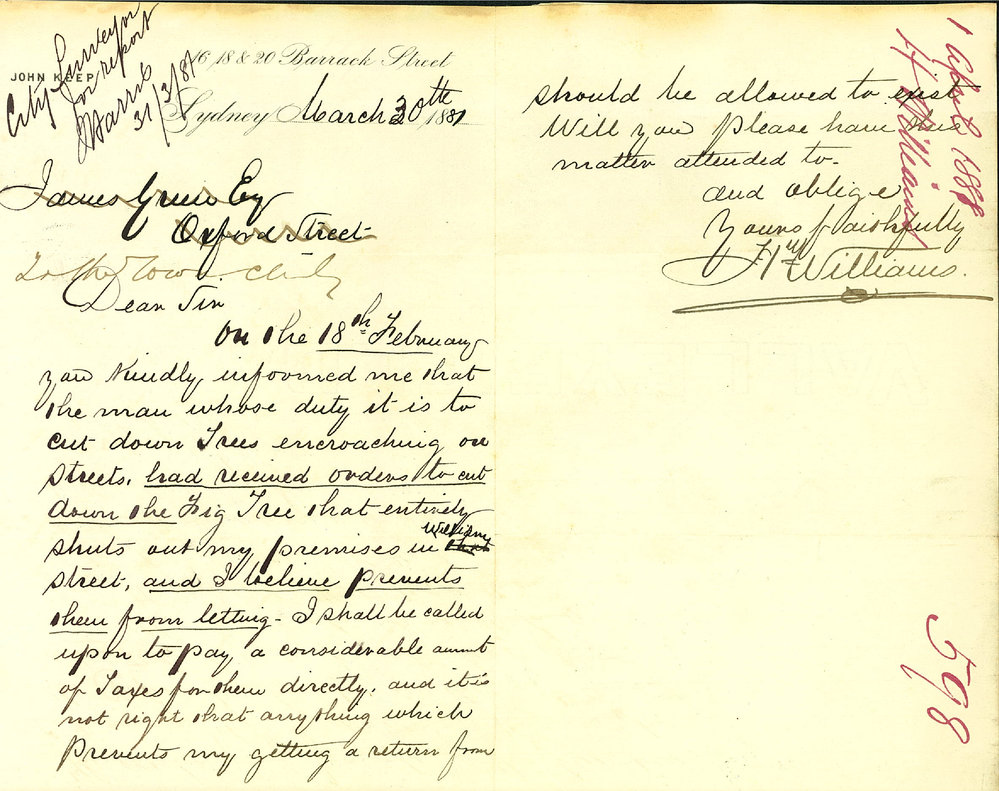 City Surveyor
for report
J Harris
31/3/81
JOHN KEEP
16, 18 & 20 Barrack Street
Sydney March 30th 1881
James Green Esq
Oxford Street
To the Town Clerk
Dear Sir
On the 18th February
you kindly informed me that
the man whose duty it is to
cut down Trees encroaching on
streets, had received orders to cut
down the Fig Tree that entirely
shuts out my premises in William
street, and I believe prevents
them from letting - I shall be called
upon to pay a considerable amount
of Taxes for them directly, and it is
not right that anything which
prevents my getting a return from
should be allowed to exist
Will you please have this
matter attended to -
and oblige
Yours faithfully
Hy Williams.
1 April 1881
H Williams
598